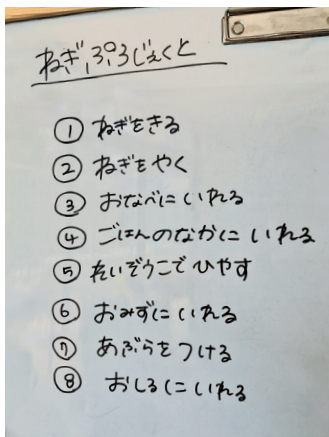 ねぎ,ぷろじぇくと
① ねぎをきる
② ねぎをやく
③ おなべにいれる
④ ごはんのなかに いれる
⑤ れいぞうこで ひやす
⑥ おみずにいれる
⑦ あぶらをつける
⑧ おしるにいれる